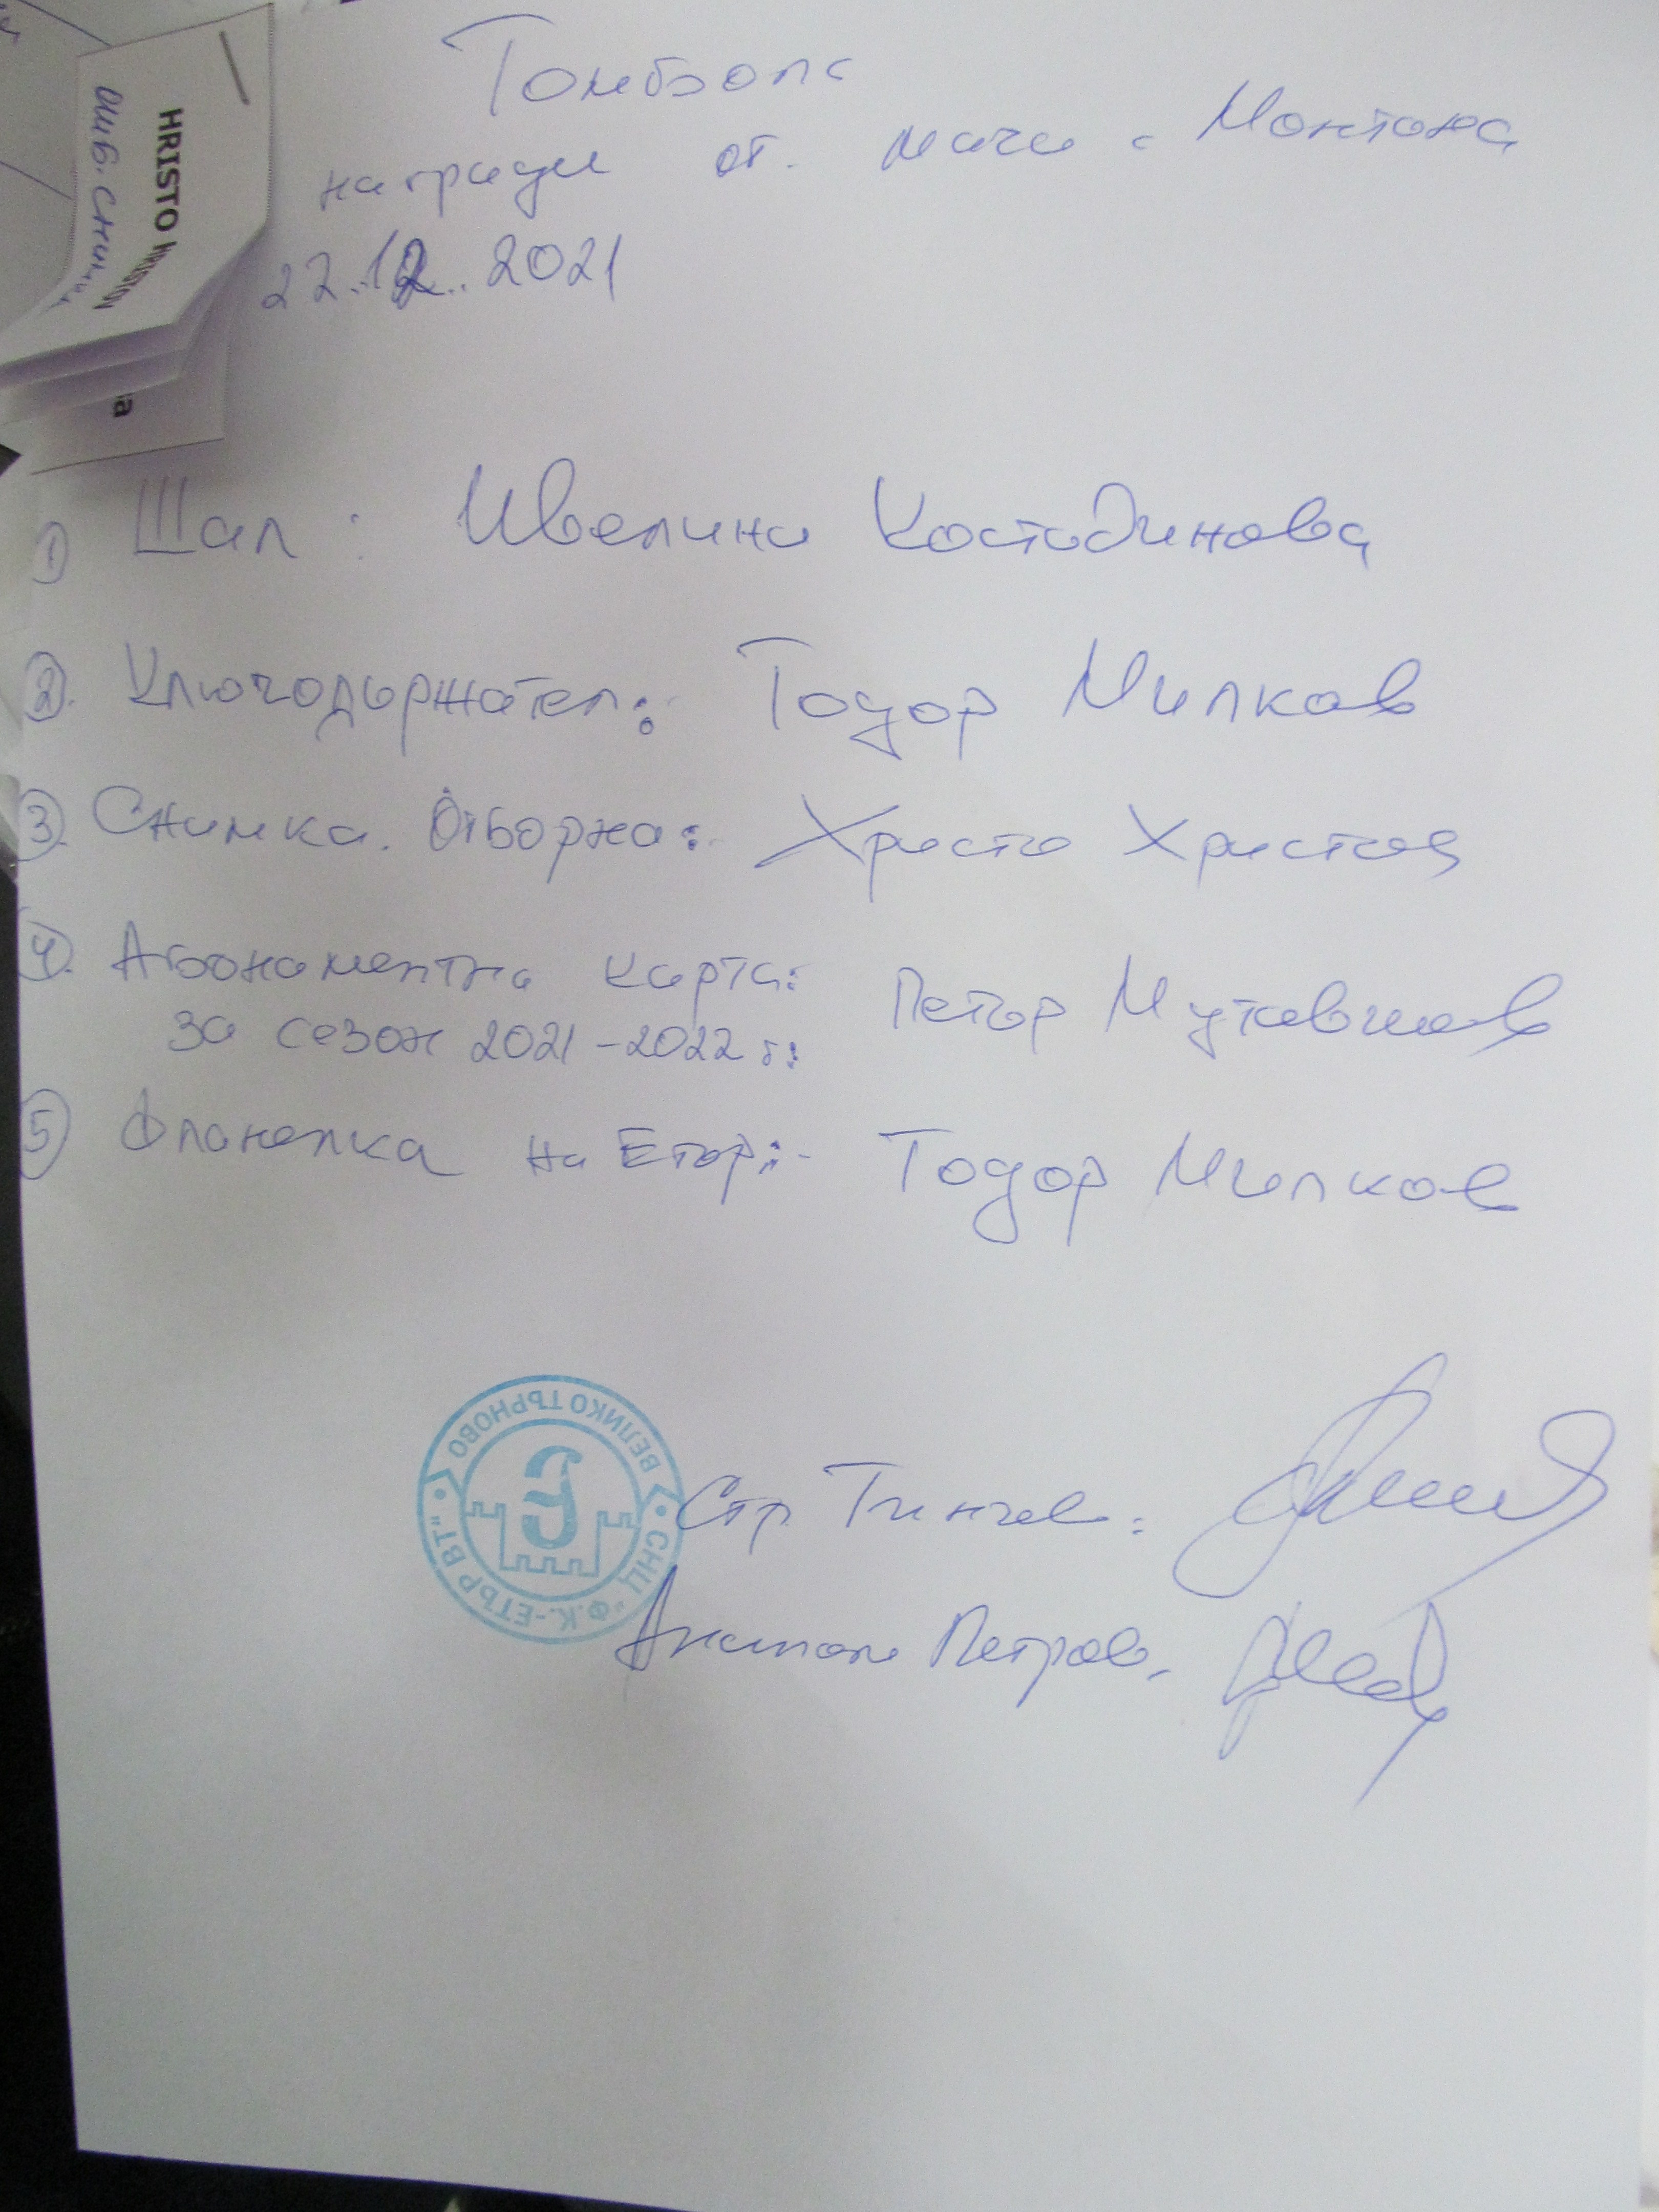 HRISTO HRISTOV
Томбола
награди от. мача с Монтана
22.12.2021
1 Шал: Ивелина Костадинова
2. Ключодържател: Тодор Милков
3. Снимка. Отборна: Христо Христов
4. Абонаментна карта: Петър Мутавчиев
за сезон 2021-2022 г:
5 Фланелка на Етър:- Тодор Милков
ВЕЛИКО ТЪРНОВО
СНЦ "Ф.К.-ЕТЪР ВТ"
Стр. Тинчев:
Петров